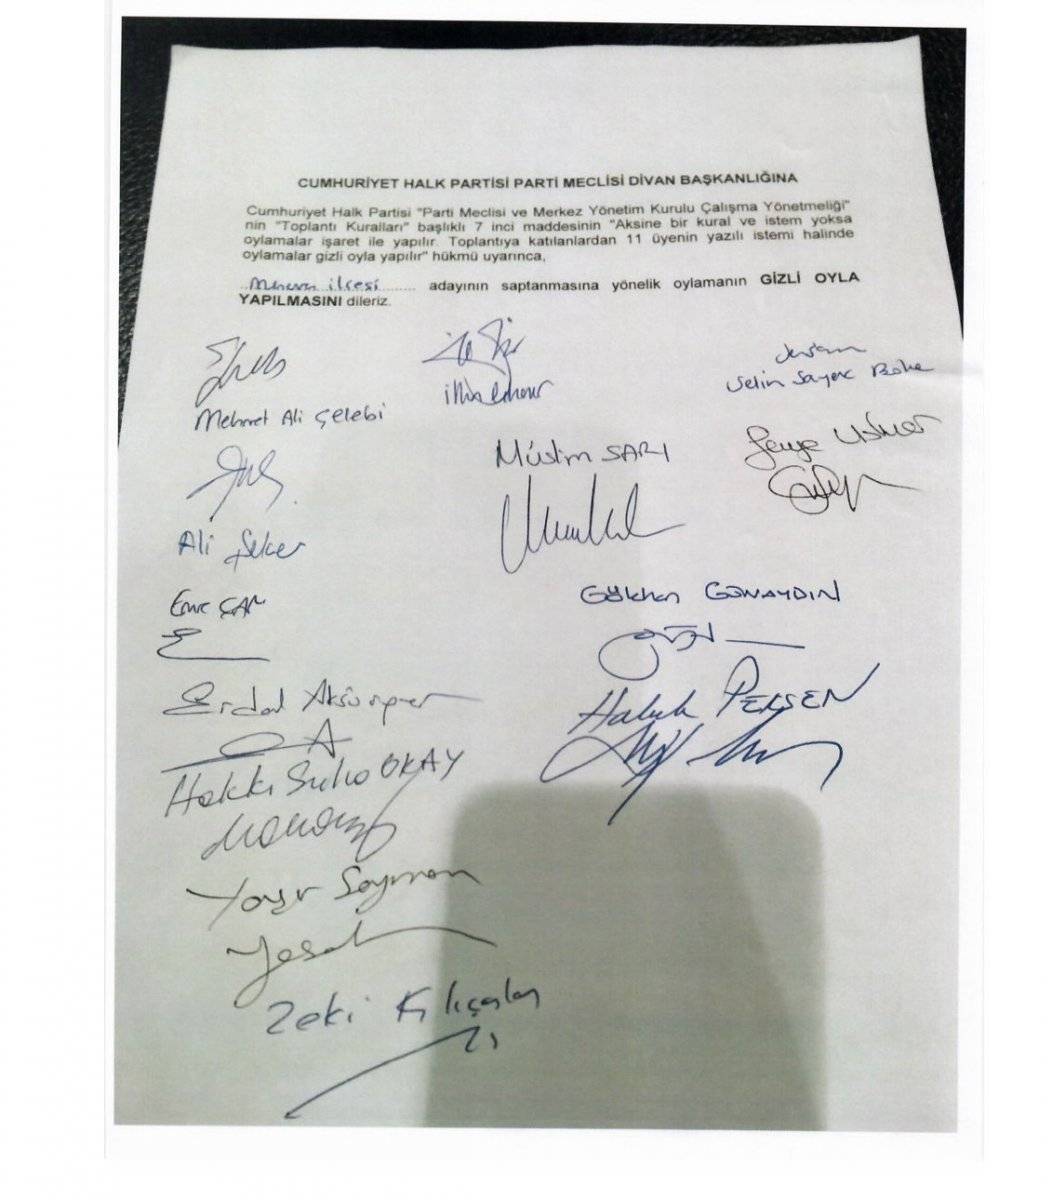 CUMHURİYET HALK PARTİSİ PARTİ MECLİSİ DİVAN BAŞKANLIĞINA
Cumhuriyet Halk Partisi "Parti Meclisi ve Merkez Yönetim Kurulu Çalışma Yönetmeliği"
nin "Toplantı Kuralları" başlıklı 7 inci maddesinin "Aksine bir kural ve istem yoksa
oylamalar işaret ile yapılır. Toplantıya katılanlardan 11 üyenin yazılı istemi halinde
oylamalar gizli oyla yapılır" hükmü uyarınca,
ilçesi ........ adayının saptanmasına yönelik oylamanın GİZLİ OYLA
YAPILMASINI dileriz.
Mehmet Ali Çelebi
Selin Sayek Böke
Müslim SARI
Ali Şeker
Emre ÇAM
Gökhan GÜNAYDIN
Erdal Aksünger
Haluk PEKŞEN
Hakkı Suha OKAY
Yaşar Seyman
Zeki Kılıçaslan